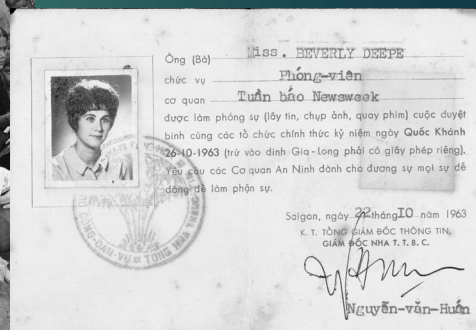 Ông (Bà) Miss. BEVERLY DEEPE
chức vụ Phóng-viên
cơ quan Tuần báo Newsweek
được làm phóng sự (lấy tin, chụp ảnh, quay phim) cuộc duyệt
binh cùng các tổ chức chính thức kỷ niệm ngày Quốc Khánh
26-10-1963 (trừ vào dinh Gia-long phải có giấy phép riêng).
Yêu cầu các Cơ quan An Ninh dành cho đương sự mọi sự dễ
dàng để làm phận sự.
Saigon, ngày 22 tháng 10 năm 1963
K. T. TỔNG GIÁM ĐỐC THÔNG TIN,
GIÁM ĐỐC NHA T. T. B. C.
Nguyễn-văn-Huấn
CÔNG-DÂN-VỤ TỔNG NHA THÔNG